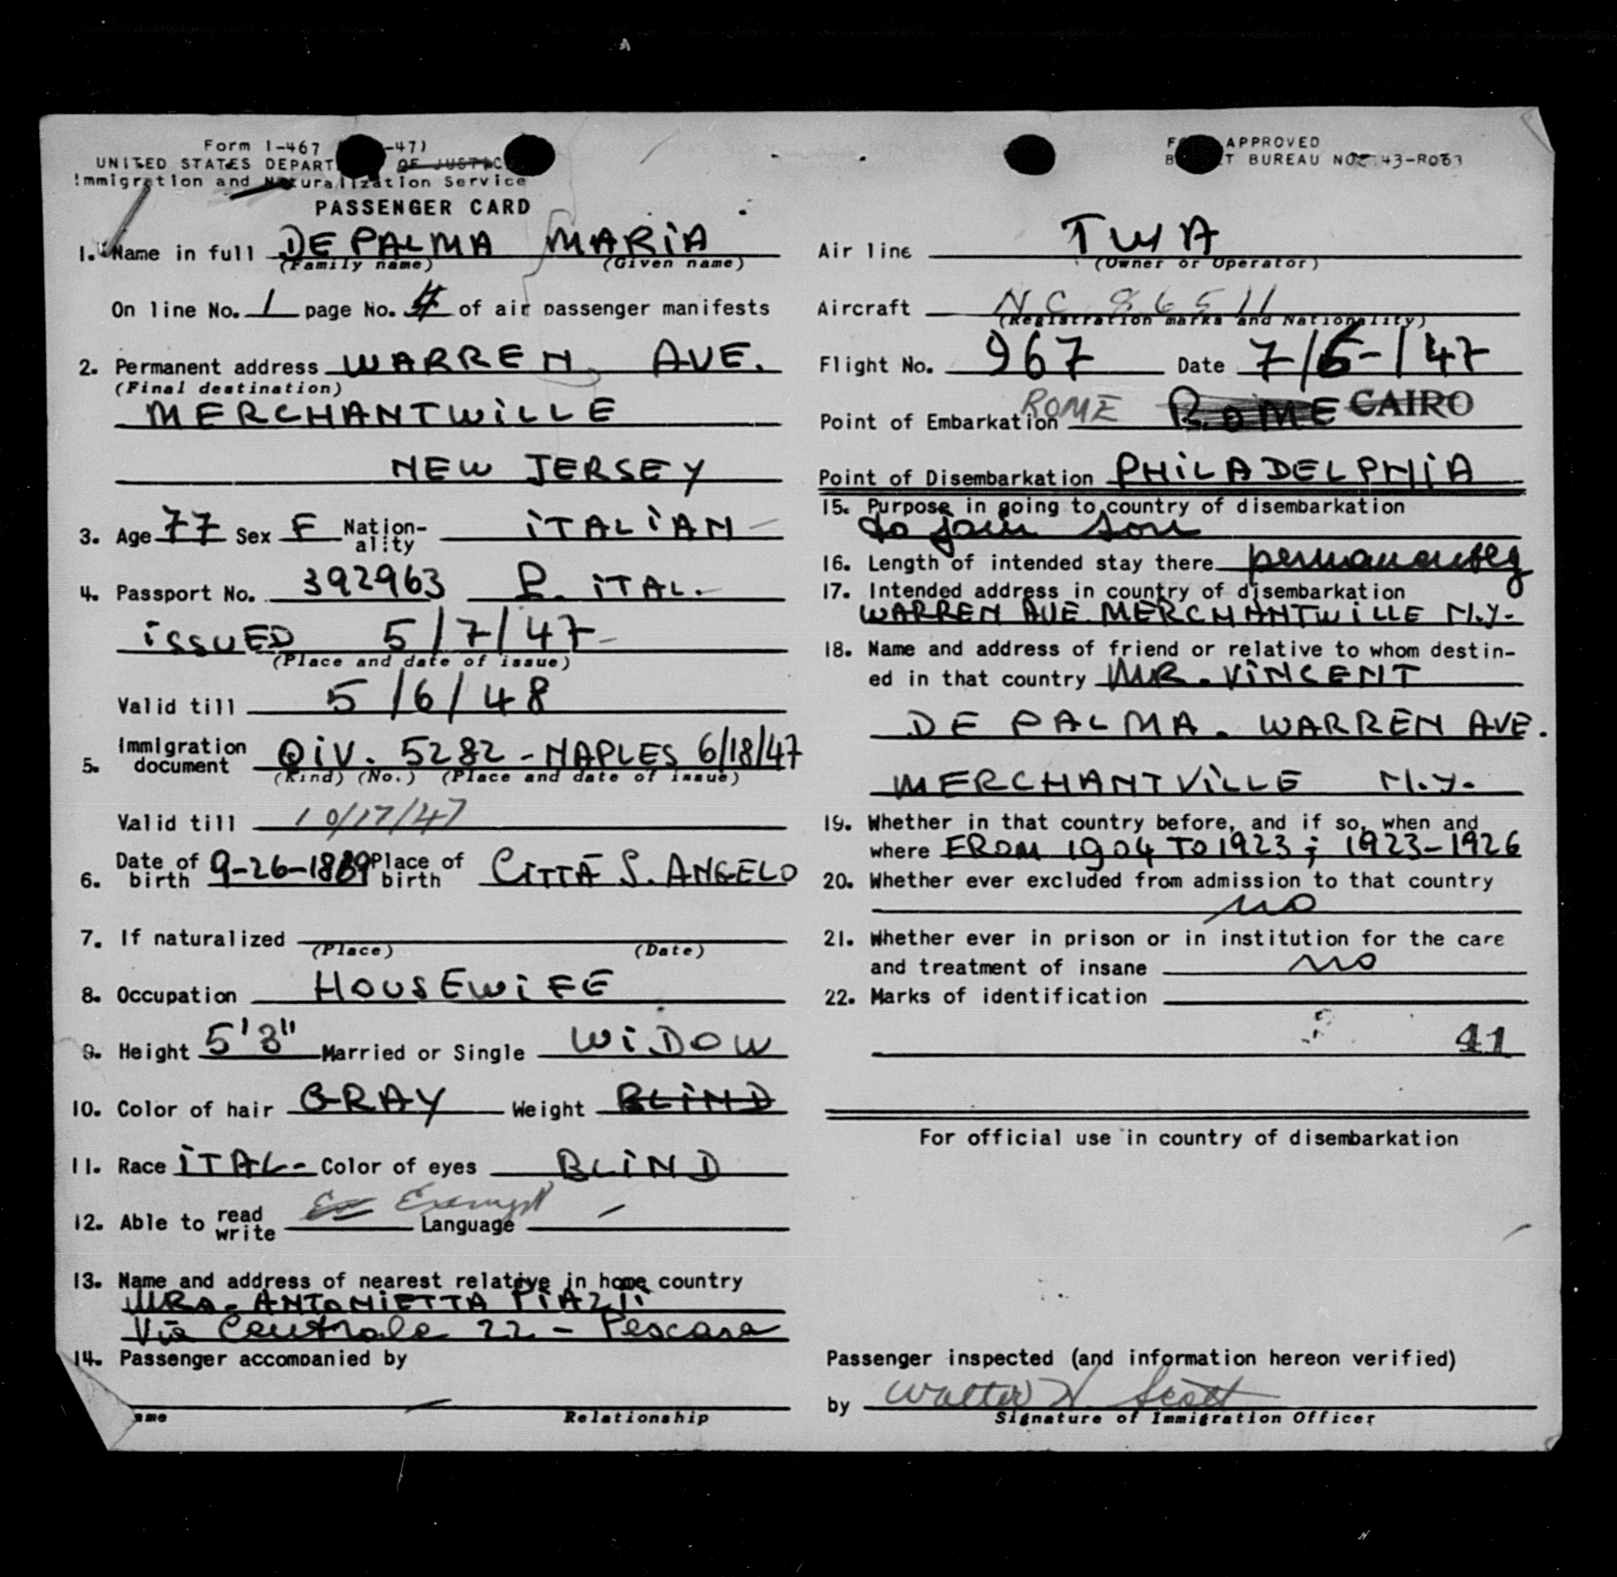 Form I-467 -47)
UNITED STATES DEPART OF JUSTIC
Immigration and Naturalization Service
PASSENGER CARD
1. Name in full DE PALMA MARIA
(Family name) (Given name)
On line No. 1 page No. 4 of air passenger manifests
2. Permanent address WARREN AVE.
(Final destination)
MERCHANTWILLE
NEW JERSEY
3. Age 77 Sex F Nation-ality ITALIAN
4. Passport No. 392963 P. ITAL.
ISSUED 5/7/47
(Place and date of issue)
Valid till 5/6/48
5. Immigration document QIV. 5282 - NAPLES 6/18/47
(Kind) (No.) (Place and date of issue)
Valid till 10/17/47
6. Date of birth 9-26-1869 Place of birth CITTÀ S. ANGELO
7. If naturalized
(Place) (Date)
8. Occupation HOUSEWIFE
9. Height 5'3" Married or Single WIDOW
10. Color of hair GRAY Weight BLIND
11. Race ITAL- Color of eyes BLIND
12. Able to read write Ex Exempt Language –
13. Name and address of nearest relative in home country
MRS. ANTONIETTA PIAZZI
Via Centrale 22 - Pescara
14. Passenger accompanied by
—
ame Relationship
APPROVED
T BUREAU NO. 43-R083
Air line TWA
(Owner or Operator)
Aircraft NC 86511
(Registration marks and Nationality)
Flight No. 967 Date 7/6-/47
Point of Embarkation ROME ROME CAIRO
Point of Disembarkation PHILADELPHIA
15. Purpose in going to country of disembarkation
to join son
16. Length of intended stay there permanently
17. Intended address in country of disembarkation
WARREN AVE. MERCHANTWILLE N.Y.
18. Name and address of friend or relative to whom destin-
ed in that country MR. VINCENT
DE PALMA. WARREN AVE.
MERCHANTVILLE N.Y.
19. Whether in that country before, and if so, when and
where FROM 1904 TO 1923; 1923-1926
20. Whether ever excluded from admission to that country
no
21. Whether ever in prison or in institution for the care
and treatment of insane no
22. Marks of identification
41
For official use in country of disembarkation
Passenger inspected (and information hereon verified)
by Walter H. Scott
Signature of Immigration Officer